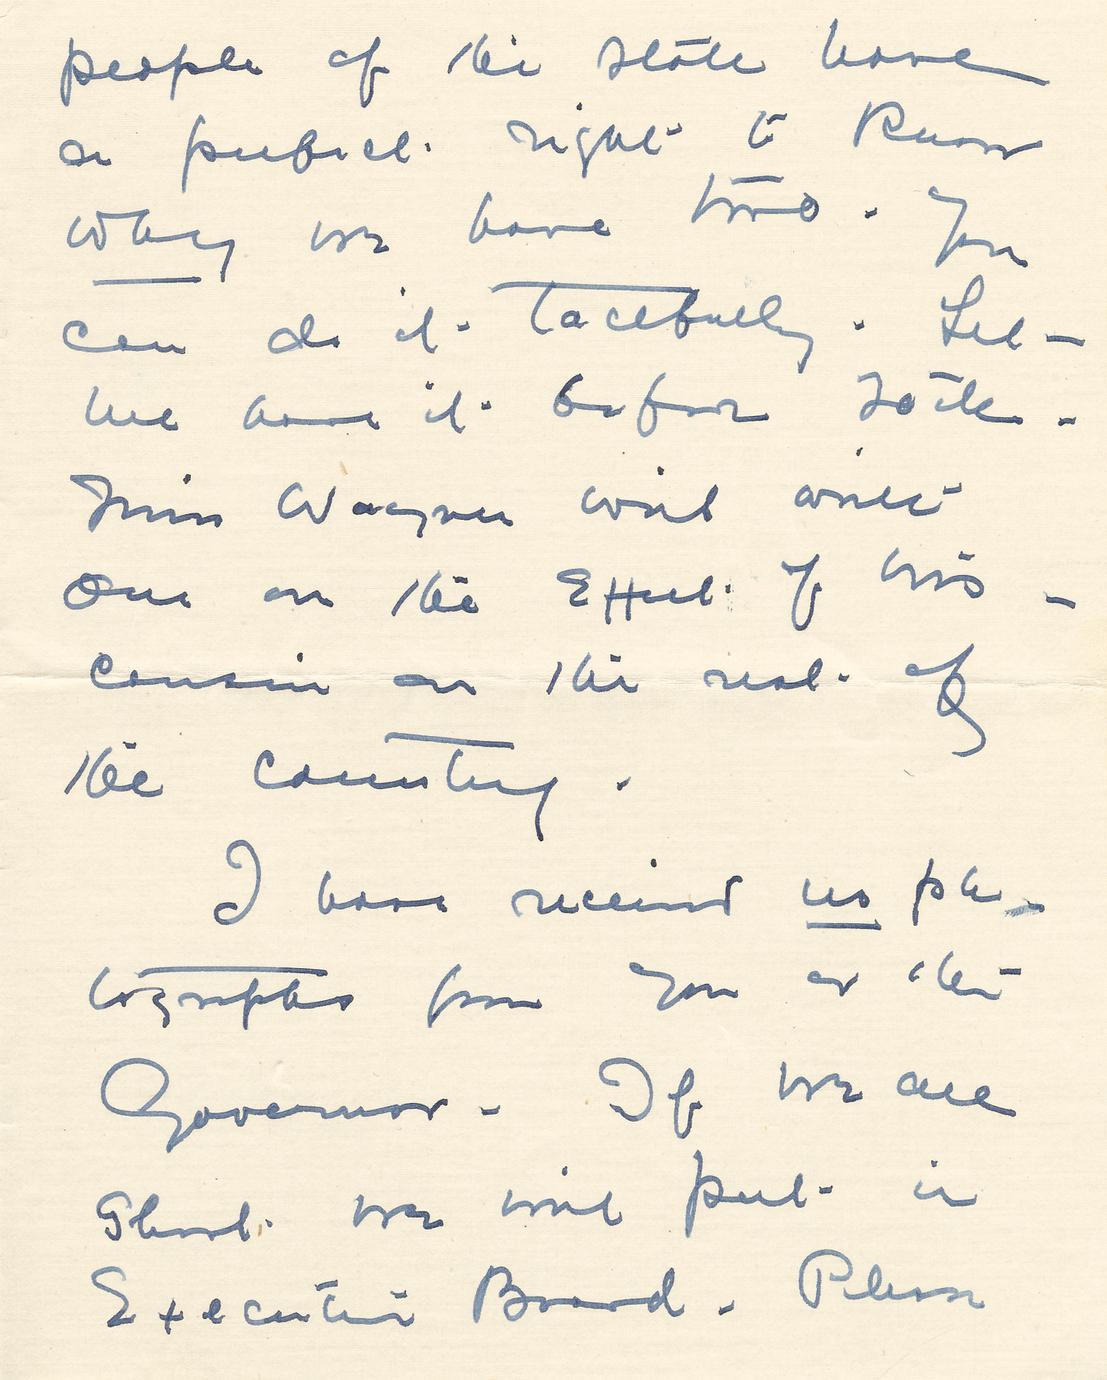 people of the state have
a perfect right to know
why we have two. You
can do it tactfully. Let
me have it before 20th.
Miss Wagner will write
one on the Effect of Wis-
consin on the rest of
the country.
I have received no pho-
tographs from you or the
Governor. If we are
short we will put in
Executive Board. Please